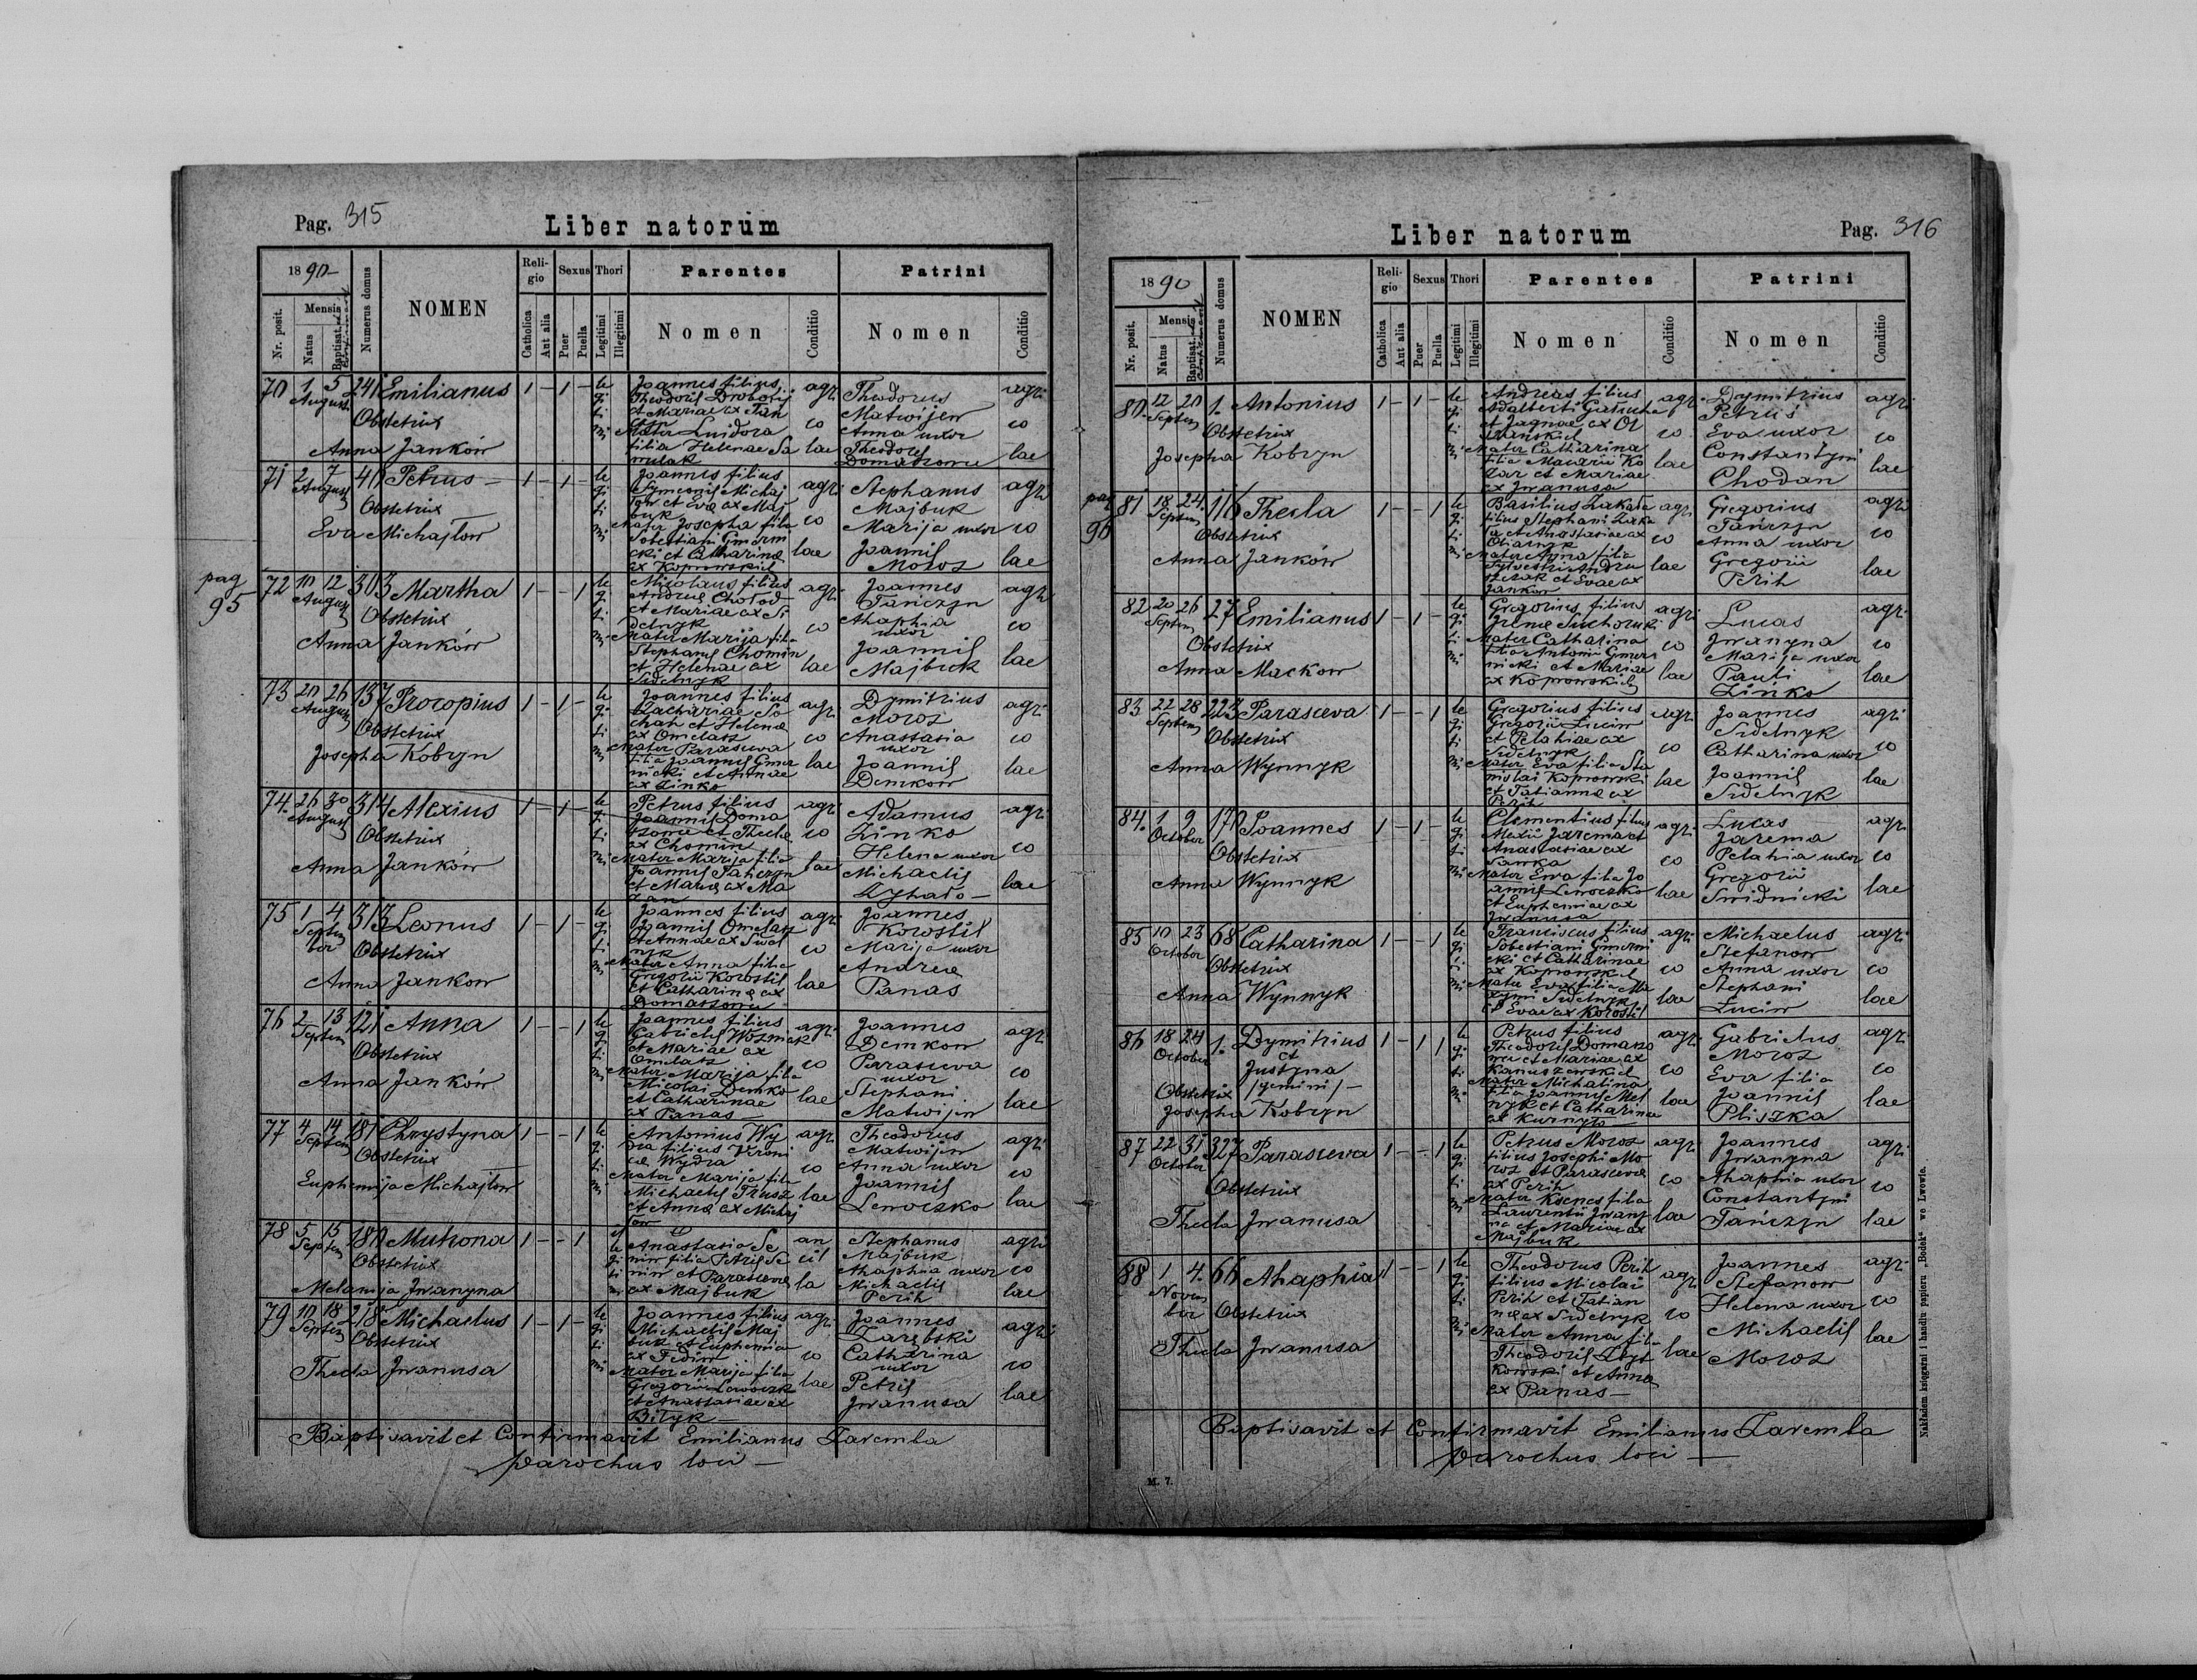 Pag. 315
Liber natorum
1890
Nr. posit.
Mensis
Natus
Baptisat.
Numerus domus
NOMEN
Religio
Catholica
Aut alia
Sexus
Puer
Puella
Thori
Legitimi
Illegitimi
Parentes
Nomen
Conditio
Patrini
Nomen
Conditio
70 1 5 August 241 Emilianus 1 – 1 –
Obstetrix
Anna Janków
legitimi
Joannes filius
Theodoris Drobotij
et Mariae ex
Mater
filia Helenae
agricolae
Theodorus
Matwijew
Anna uxor
Theodoris
agricolae
71 2 7 August 40 Petrus 1 – 1 –
Obstetrix
Eva Michajlow
legitimi
Joannes filius
Symeonis Michaj
low et Evae ex Maj
buk
Mater Josepha filia
Sobestiani Gmerni
cki et Catharinae
ex Koprowskich
agricolae
Stephanus
Majbuk
Marija uxor
Joannis
Moroz
agricolae
pag
95
72 10 12 August 303 Martha 1 – – 1
Obstetrix
Anna Janków
legitimi
Nicolaus filius
Andreae Chołod
et Mariae ex Si
delnyk
Mater Marija filia
Stephani Chomin
et Helenae ex
Sidelnyk
agricolae
Joannes
Tańczyn
Ahaphia
uxor
Joannis
Majbuk
agricolae
73 20 26 August 137 Procopius 1 – 1 –
Obstetrix
Josepha Kobryn
legitimi
Joannes filius
Zachariae So
et Helenae
ex Omelasz
Mater Parasceva
filia Joannis Gmer
nicki et Annae
ex Zinko
agricolae
Dymitrius
Moroz
Anastasia
uxor
Joannis
Demkow
agricolae
74. 26 30 August 314 Alexius 1 – 1 –
Obstetrix
Anna Janków
legitimi
Petrus filius
Joannis Doma
et Theclae
ex Chomin
Mater Marija filia
Joannis Tańczyn
et Mariae ex Ma
agricolae
Adamus
Zinko
Helena uxor
Michaelis
agricolae
75 1 4 September 313 Leonus 1 – 1 –
Obstetrix
Anna Jankow
legitimi
Joannes filius
Joannis Omelasz
et Annae ex Sidel
nyk
Mater Anna filia
Gregorii Korostil
et Catharinae ex
agricolae
Joannes
Korostil
Marija uxor
Andreae
Panas
76 2 13 Septem 121 Anna 1 – – 1
Obstetrix
Anna Janków
legitimi
Joannes filius
Gabrielis Wozniak
et Mariae ex
Omelasz
Mater Marija filia
Nicolai Demko
et Catharinae
ex Panas –
agricolae
Joannes
Demkow
Parasceva
uxor
Stephani
Matwijew
agricolae
77 4 14 Septem 181 Chrystyna 1 – – 1
Obstetrix
Euphemija Michajlow
legitimi
Antonius Wy
dra filius Vroni
cae Wydra
Mater Marija filia
Michaelis Trusz
et Annae ex Michaj
low
agricolae
Theodorus
Matwijew
Anna uxor
Joannis
Lewoczko
agricolae
78 5 15 Septem 180 Mutrona 1 – – 1
Obstetrix
Melanija Jwanyna
illegitimi
Anastasia Se
niw filia Petri Se
niw et Parascevae
ex Majbuk
ancilla
Stephanus
Majbuk
Ahaphia uxor
Michaelis
Perih
agricolae
79 10 18 Septem 218 Michaelus 1 – 1 –
Obstetrix
Thecla Jwanusa
legitimi
Joannes filius
Michaelis Maj
buk et Euphemiae
ex Fediw
Mater Marija filia
Gregorii Lewoczko
et Anastasiae ex
Biłyk –
agricolae
Joannes
Zarębski
Catharina
uxor
Petri
Jwanusa
agricolae
Baptisavit et Confirmavit Emilianus Zaremba
parochus loci –
Liber natorum
Pag. 316
1890
Nr. posit.
Mensis
Natus
Baptisat.
Numerus domus
NOMEN
Religio
Catholica
Aut alia
Sexus
Puer
Puella
Thori
Legitimi
Illegitimi
Parentes
Nomen
Conditio
Patrini
Nomen
Conditio
80. 12 20 Septem 1. Antonius 1 – 1 –
Obstetrix
Josepha Kobryn
legitimi
Andreas filius
Adalberti
et Jagnae ex
Mater Catharina
filia Macarii Ko
et Mariae
ex Jwanusa
agricolae
Dymitrius
Petrus
Eva uxor
Constantyni
Chodan
agricolae
pag
96
81 18 24. Septem 116 Thecla 1 – – 1
Obstetrix
Anna Janków
legitimi
Basilius Zakała
filius Stephani Zaka
ła et Anastasiae ex
Mater Anna filia
Sylvestri Andru
et Evae ex
Jankow
agricolae
Gregorius
Tańczyn
Anna uxor
Gregorii
Perih
agricolae
82 20 26 Septem 27 Emilianus 1 – 1 –
Obstetrix
Anna Mackow
legitimi
Gregorius filius
Irenae Suchorski
Mater Catharina
filia Antonii Gmer
nicki et Mariae
ex Koprowskich
agricolae
Lucas
Jwanyna
Marija uxor
Pauli
Zinko
agricolae
83 22 28 Septem 223 Parasceva 1 – – 1
Obstetrix
Anna Wynnyk
legitimi
Gregorius filius
Gregorii Luciw
et Pelahiae ex
Sidelnyk
Mater Eva filia Sta
nislai Koprowski
et Tatiannae ex
Perih
agricolae
Joannes
Sidelnyk
Catharina uxor
Joannis
Sidelnyk
agricolae
84. 1 9 October 170 Joannes 1 – 1 –
Obstetrix
Anna Wynnyk
legitimi
Clementius filius
Alexii Jarema et
Anastasiae ex
Mater Ewa filia Jo
annis Lewoczko
et Euphemiae ex
Jwanusa
agricolae
Lucas
Jarema
Pelahia uxor
Gregorii
Swidnicki
agricolae
85 10 23 October 68 Catharina 1 – – 1
Obstetrix
Anna Wynnyk
legitimi
Franciscus filius
Sobestiani Gmerni
cki et Catharinae
ex Koprowskich
Mater Eva filia Ma
xymi Sidelnyk
et Evae ex Korostil
agricolae
Michaelus
Stefanow
Anna uxor
Stephani
Luciw
agricolae
86 18 24 October 1. Dymitrius 1 – 1 1
et
Justyna
/gemini/ –
Obstetrix
Josepha Kobryn
legitimi
Petrus filius
Theodoris
et Mariae ex
Kanuszewskich
Mater Michalina
filia Joannis Mel
nyk et Catharinae
ex
agricolae
Gabrielus
Moroz
Eva filia
Joannis
Pliszka
agricolae
87 22 31 October 327 Parasceva 1 – – 1
Obstetrix
Thecla Jwanusa
legitimi
Petrus Moroz
filius Josephi Mo
roz et Parascevae
ex Perih
Mater Ksenes filia
Laurentii Jwany
na et Mariae ex
Majbuk
agricolae
Joannes
Jwanyna
Ahaphia uxor
Constantyni
Tańczyn
agricolae
88 1 4. November 66 Ahaphia 1 – – 1
Obstetrix
Thecla Jwanusa
legitimi
Theodorus Perih
filius Nicolai
Perih et Tatian
nae ex Sidelnyk
Mater Anna filia
Theodoris
kowski et Annae
ex Panas –
agricolae
Joannes
Stefanow
Helena uxor
Michaelis
Moroz
agricolae
Baptisavit et Confirmavit Emilianus Zaremba
parochus loci –
M. 7.
Nakładem księgarni i handlu papieru „Bodek“ we Lwowie.